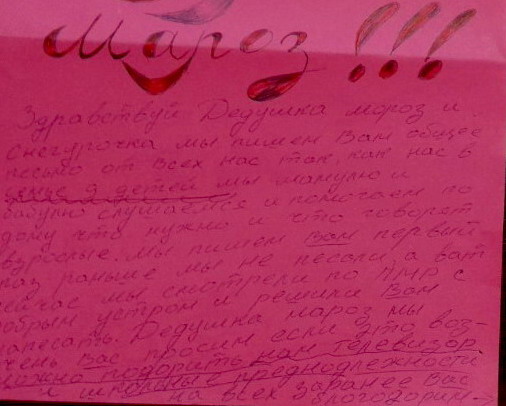 Мароз!!!
Здравствуй Дедушка мороз и
снегурочка мы пишем Вам общее
письмо от всех нас так как нас в
семье 9 детей мы мамулю и
бабулю слушаемся и помогаем по
дому что нужно и что говорят
взрослые. Мы пишем Вам первый
раз раньше мы не песали а вот
сейчас мы смотрели по ПМР с
добрым утром и решили Вам
напесать. Дедушка мороз мы
очень Вас просим если это воз-
можно подорить нам телевизор
и школьные преднодлежности
на всех заранее Вас
благодорим